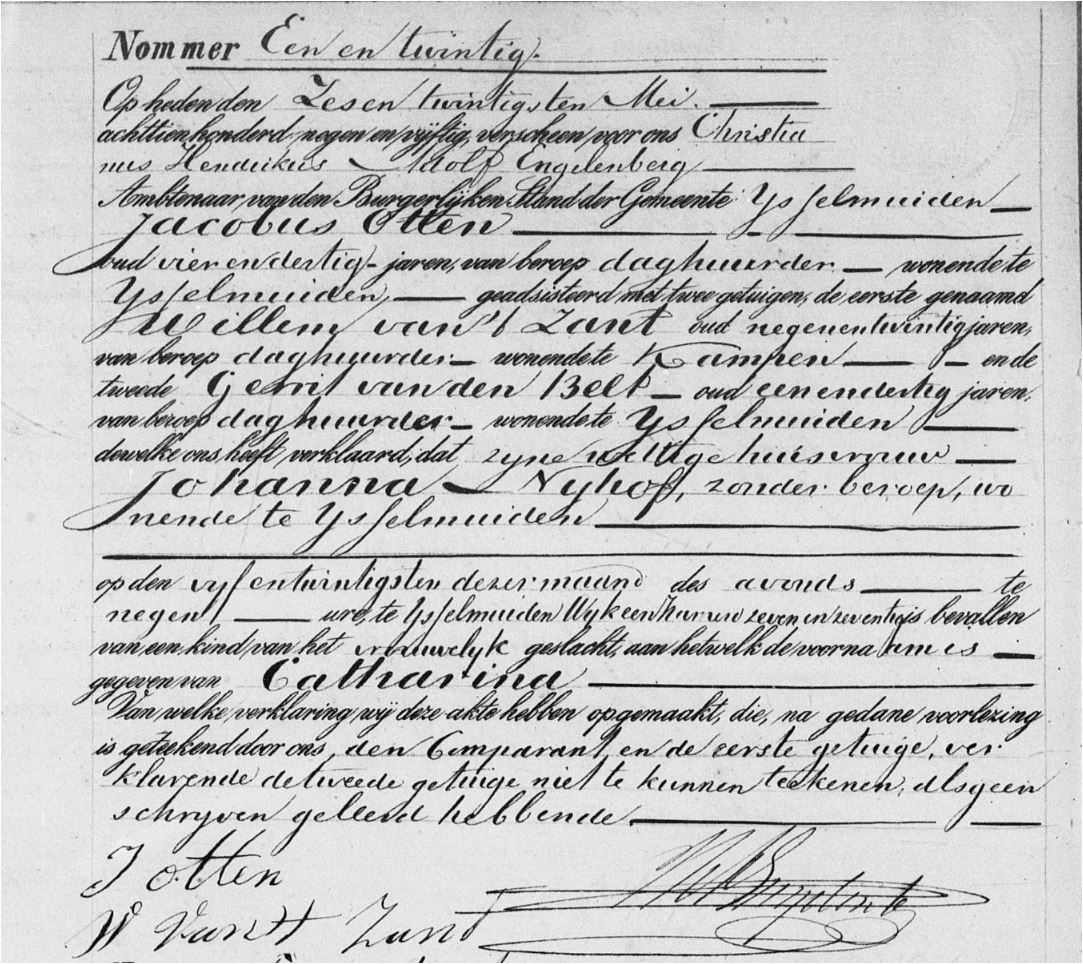 Nommer Een en twintig.
Op heden den Zesen twintigsten Mei.
achttien honderd, negen en vijftig, verscheen voor ons Christia
nus Hendrikus Adolf Engelenberg
Ambtenaar van den Burgerlijken Stand der Gemeente Ysselmuiden
Jacobus Otten
oud vier en dertig jaren, van beroep daghuurder wonende te
Ysselmuiden, geadsisteerd met twee getuigen, de eerste genaamd
Willem van 't Zant oud negenentwintig jaren,
van beroep daghuurder wonende te Kampen en de
tweede Gerrit van den Belt oud eenendertig jaren,
van beroep daghuurder wonende te Ysselmuiden
dewelke ons heeft verklaard, dat zyne wettige huisvrouw
Johanna Nyhof, zonder beroep, wo
nende te Ysselmuiden
op den vyfentwintigsten dezer maand des avonds te
negen ure, te Ysselmuiden Wyk een zeven en zeventig is bevallen
van een kind van het vrouwelyk geslacht, aan hetwelk de voornaam is
gegeven van Catharina
Van welke verklaring wij deze akte hebben opgemaakt, die, na gedane voorlezing
is geteekend door ons, den Comparant, en de eerste getuige, ver
klarende de tweede getuige niet te kunnen teekenen, als geen
schryven geleerd hebbende
J Otten
W Van 't Zand